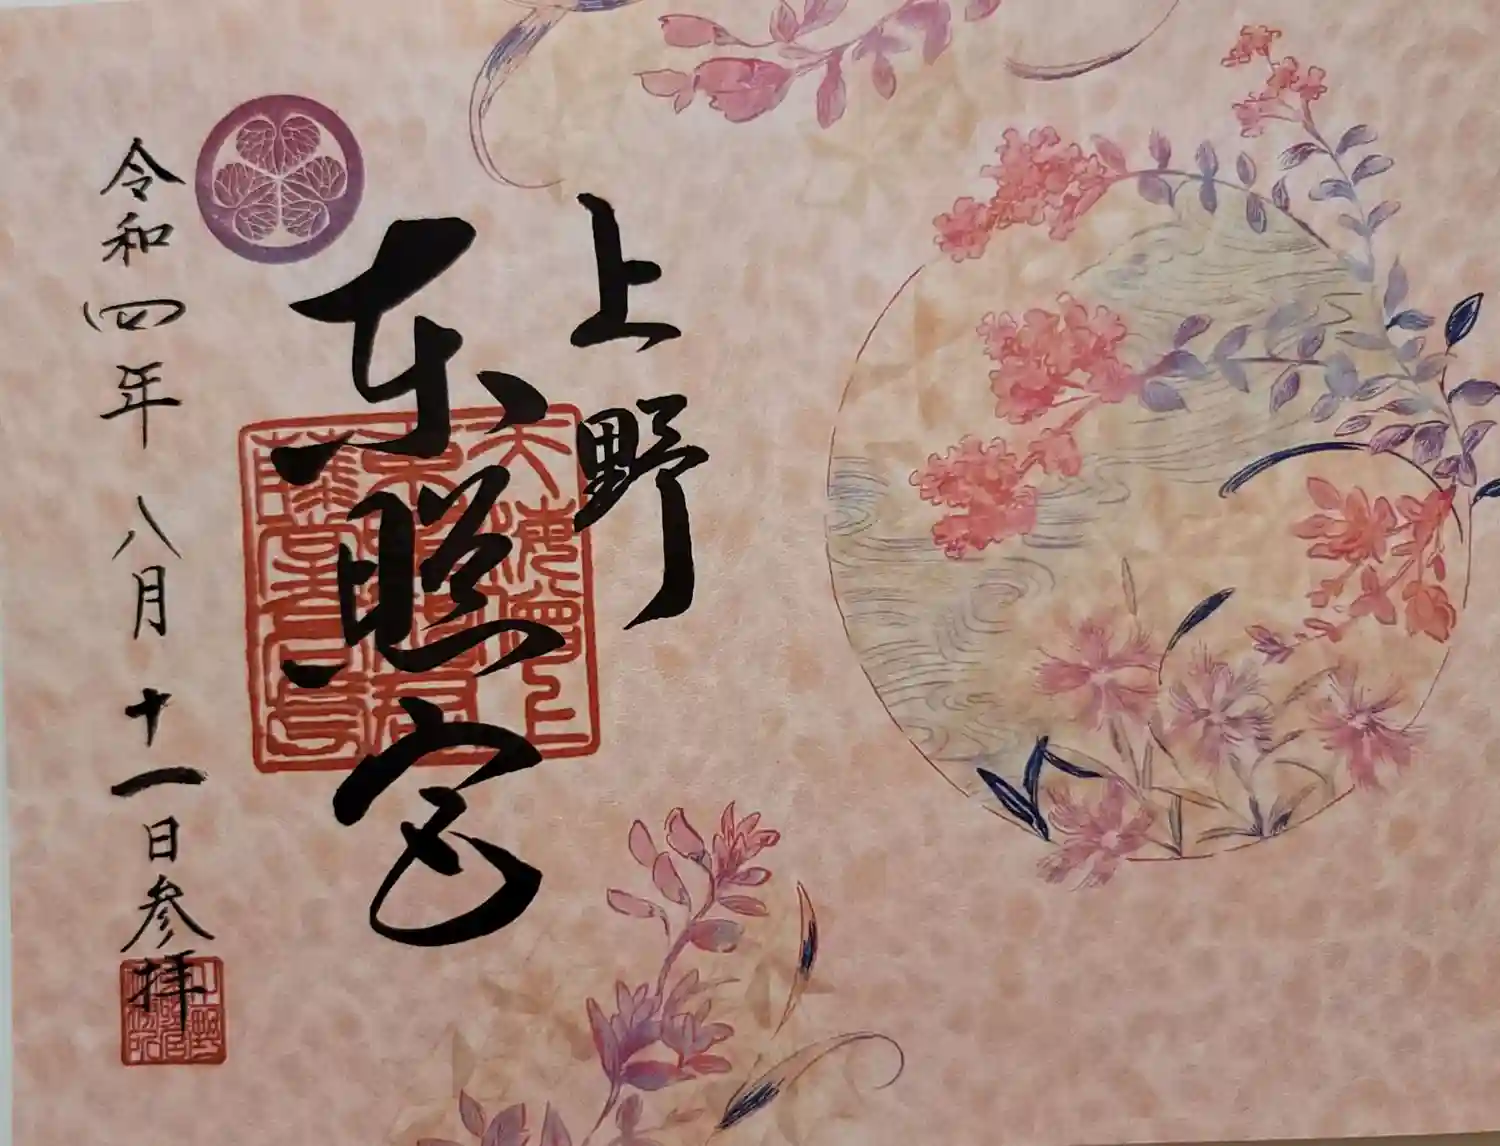 上野
東照宮
令和四年八月十一日参拝